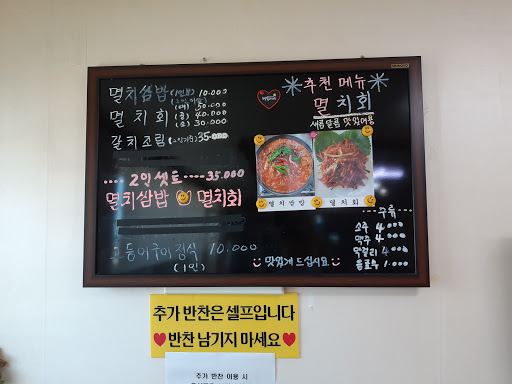 멸치쌈밥 (1인분) 10.000
(2인이상)
(대) 50.000
멸치회 (중) 40.000
(소) 30.000
갈치조림 (2인기준) 35.000
.... 2인 셋트 ---- 35.000
멸치쌈밥 멸치회
고등어구이정식 10.000
(1인)
추천 메뉴
멸치회
새콤달콤 맛있어용
멸치쌈밥
멸치회
주류
소주 4.000
맥주 4.000
막걸리 4.000
음료수 1.000
맛있게 드십시요.
추가 반찬은 셀프입니다
반찬 남기지 마세요
추가 반찬 이용 시